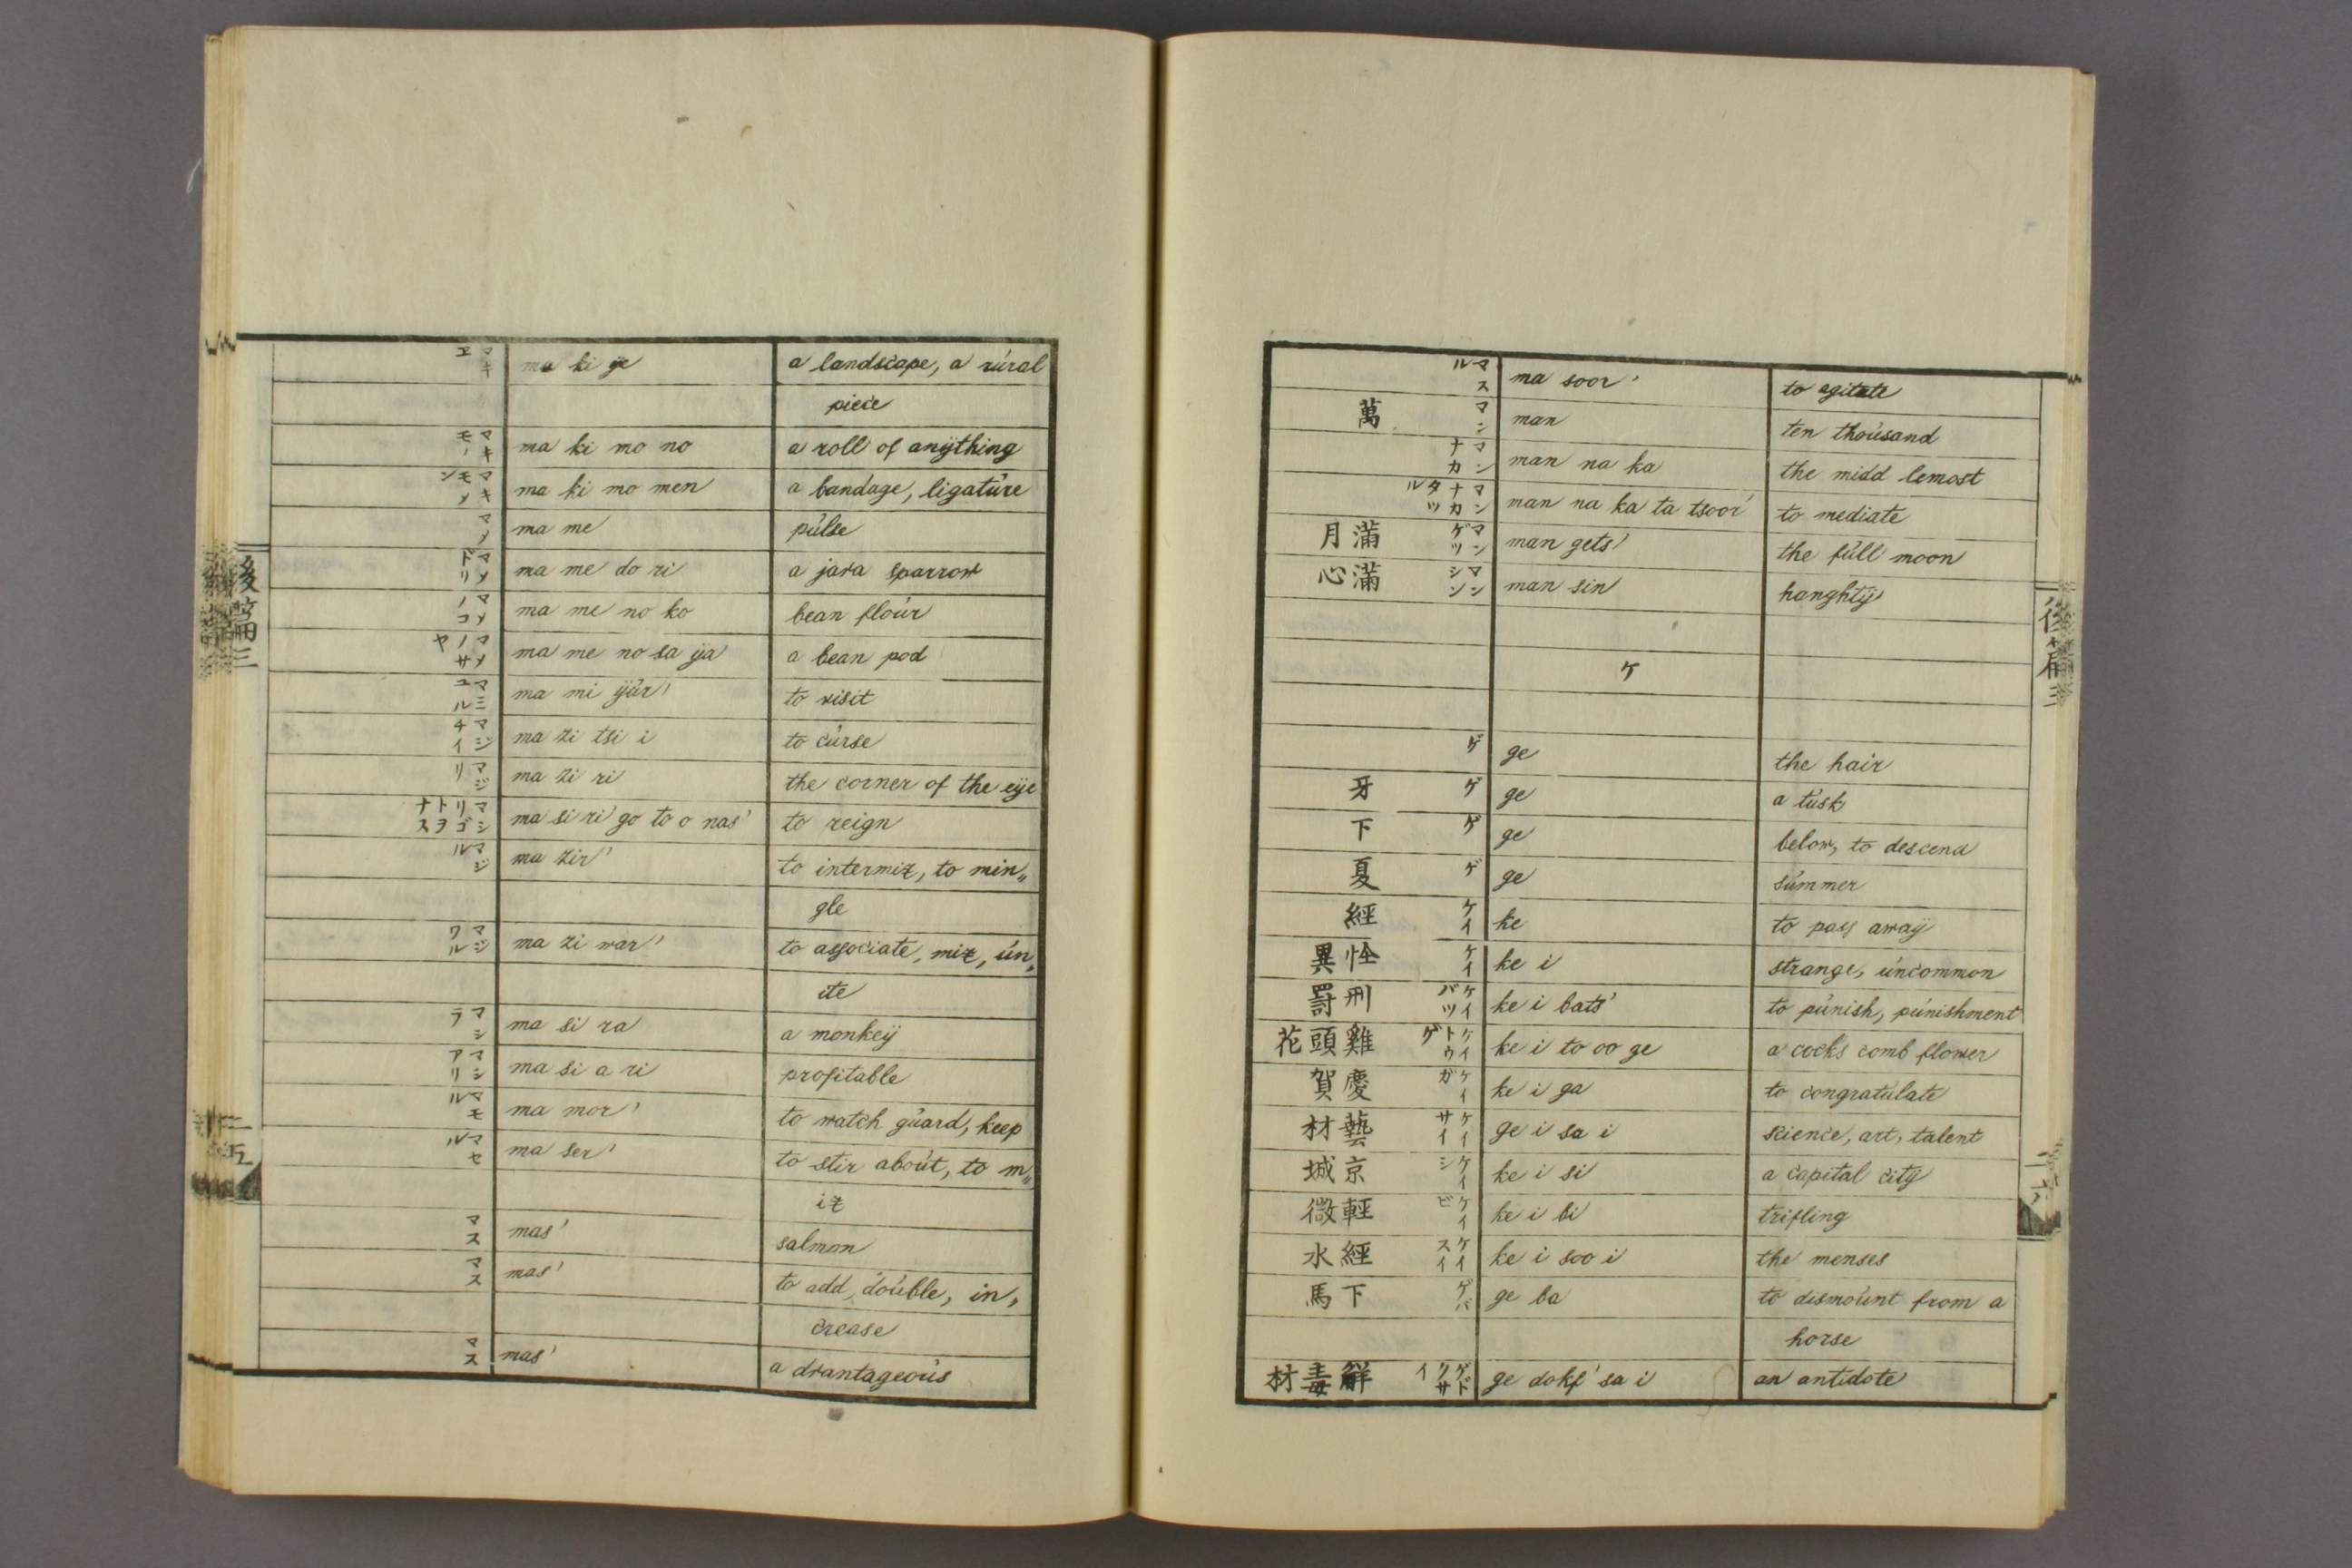 マキヱ ma ki ÿe a landscape, a rúral
piece
マキモノ ma ki mo no a roll of anÿthing
マキモメン ma ki mo men a bandage, ligatúre
マメ ma me púlse
マメドリ ma me do ri a java sparrow
マメノコ ma me no ko bean floúr
マメノサヤ ma me no sa ÿa a bean pod
マミユル ma mi ÿúr' to visit
マジチイ ma zi tsi i to cúrse
マジリ ma zi ri the corner of the eÿe
マシリゴトヲナス ma si ri go to o nas' to reign
マジル ma zir' to intermix, to min„
gle
マジワル ma zi war' to associate, mix, ún„
ite
マシラ ma si ra a monkeÿ
マシアリ ma si a ri profitable
マモル ma mor' to watch gúard, keep
マセル ma ser' to stir aboút, to m„
ix
マス mas' salmon
マス mas' to add, doúble, in„
crease
マス mas' a dvantageoús
後篇三
二十五
マスル ma soor' to agitate
萬 マン man ten thoúsand
マンナカ man na ka the midd lemost
マンナカタツル man na ka ta tsoor' to mediate
滿月 マンゲツ man gets' the fúll moon
滿心 マンシン man sin hanghtÿ
ケ
ゲ ge the hair
牙 ゲ ge a túsk
下 ゲ ge below, to descend
夏 ゲ ge súmmer
經 ケイ ke to pass awaÿ
恠異 ケイ ke i strange, úncommon
刑罸 ケイバツ ke i bats' to púnish, púnishment
雞頭花 ケイトウゲ ke i to oo ge a cocks comb flower
慶賀 ケイガ ke i ga to congratúlate
藝材 ケイサイ ge i sa i science, art, talent
京城 ケイシ ke i si a capital citÿ
輕微 ケイビ ke i bi trifling
經水 ケイスイ ke i soo i the menses
下馬 ゲバ ge ba to dismoúnt from a
horse
解毒材 ゲドクサイ ge dokf' sa i an antidote
後篇三
二十六